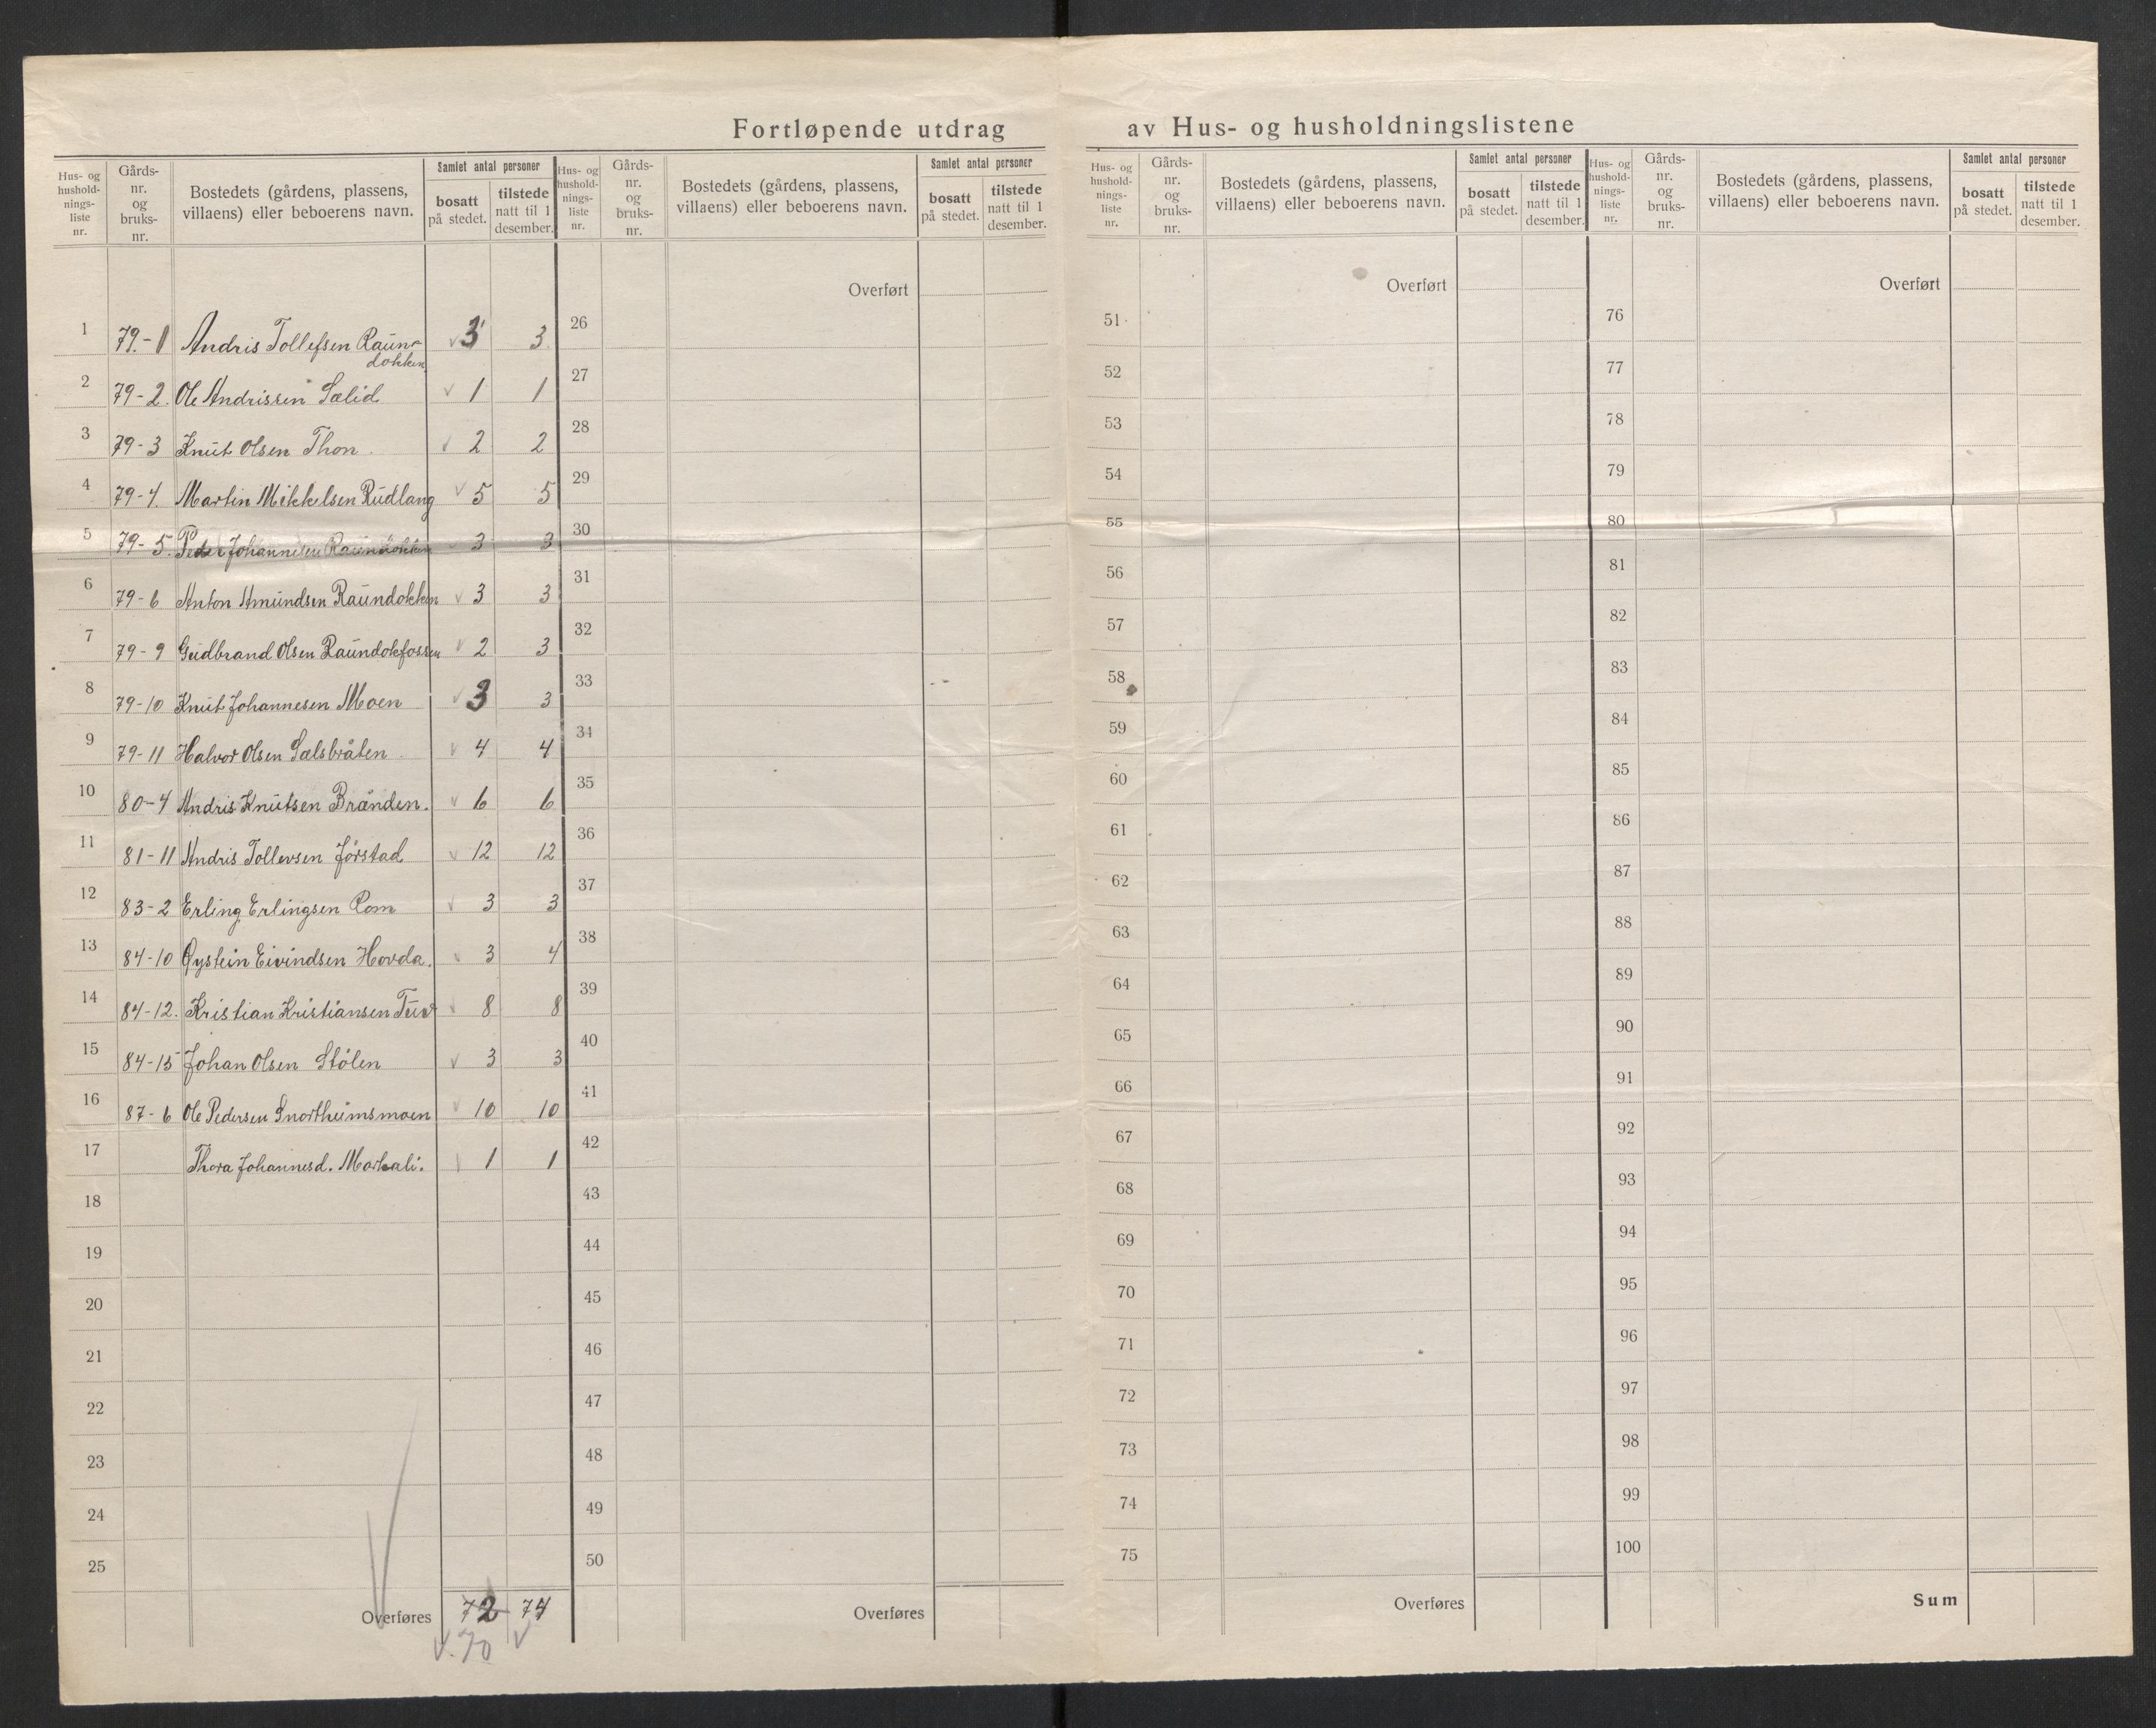 Fortløpende utdrag av Hus- og husholdningslistene
Hus- og hushold-nings-liste nr. Gårds-nr. og bruks-nr. Bostedets (gårdens, plassens, villaens) eller beboerens navn. Samlet antal personer bosatt på stedet. tilstede natt til 1 desember.
1 79.-1 Andris Tollefsen Raun-
dokken 3 3
2 79-2. Ole Andrissen Sælid 1 1
3 79-3 Knut Olsen Thon. 2 2
4 79-4. Martin Mikkelsen Rudlang 5 5
5 79-5. Peder Johannesen Raundokken 3 3
6 79-6 Anton Amundsen Raundokken 3 3
7 79-9 Gudbrand Olsen Raundokfossen 2 3
8 79-10 Knut Johannesen Moen 3 3
9 79-11 Halvor Olsen Sælsbråten 4 4
10 80-4 Andris Knutsen Brånden. 6 6
11 81-11 Andris Tollevsen Jørstad 12 12
12 83-2 Erling Erlingsen Rom 3 3
13 84-10 Øystein Eivindsen Hovda. 3 4
14 84-12. Kristian Kristiansen 8 8
15 84-15 Johan Olsen Stølen 3 3
16 87-6 Ole Pedersen Snortheimsmoen 10 10
17 Thora Johannesd. 1 1
18
19
20
21
22
23
24
25
Overføres 72 74
70
Hus- og hushold-nings-liste nr. Gårds-nr. og bruks-nr. Bostedets (gårdens, plassens, villaens) eller beboerens navn. Samlet antal personer bosatt på stedet. tilstede natt til 1 desember.
Overført
26
27
28
29
30
31
32
33
34
35
36
37
38
39
40
41
42
43
44
45
46
47
48
49
50
Overføres
Hus- og hushold-nings-liste nr. Gårds-nr. og bruks-nr. Bostedets (gårdens, plassens, villaens) eller beboerens navn. Samlet antal personer bosatt på stedet. tilstede natt til 1 desember.
Overført
51
52
53
54
55
56
57
58
59
60
61
62
63
64
65
66
67
68
69
70
71
72
73
74
75
Overføres
Hus- og hushold-nings-liste nr. Gårds-nr. og bruks-nr. Bostedets (gårdens, plassens, villaens) eller beboerens navn. Samlet antal personer bosatt på stedet. tilstede natt til 1 desember.
Overført
76
77
78
79
80
81
82
83
84
85
86
87
88
89
90
91
92
93
94
95
96
97
98
99
100
Sum